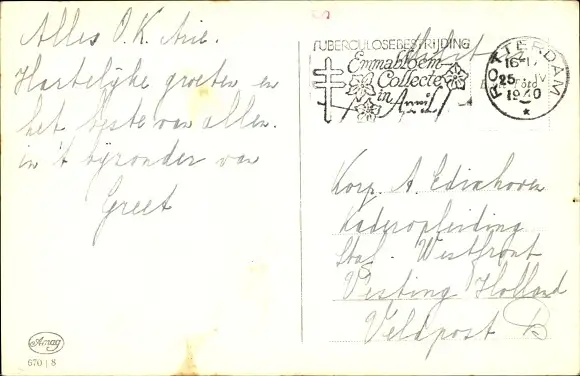 Alles O.K. Arie.
Hartelijke groeten en
het beste van allen.
in 't bijzonder van
Greet
TUBERCULOSEBESTRIJDING
Emmabloem-
Collecte
in April
ROTTERDAM
16-17
25 IV
1940
Korp. A. Edixhoven
Kaderopleiding
Staf. Westfront
Vesting Holland
Veldpost B
Amag
670 | 8